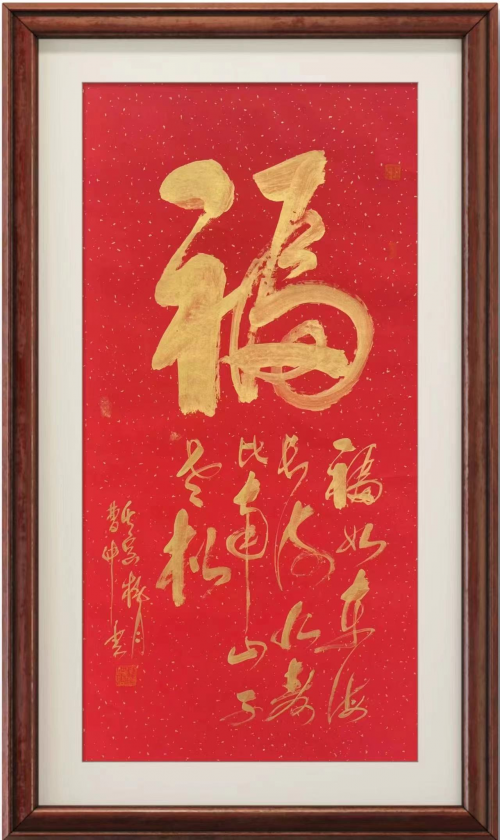 福
福如东海
长流水寿
比南山不
老松
桃月
曹中书